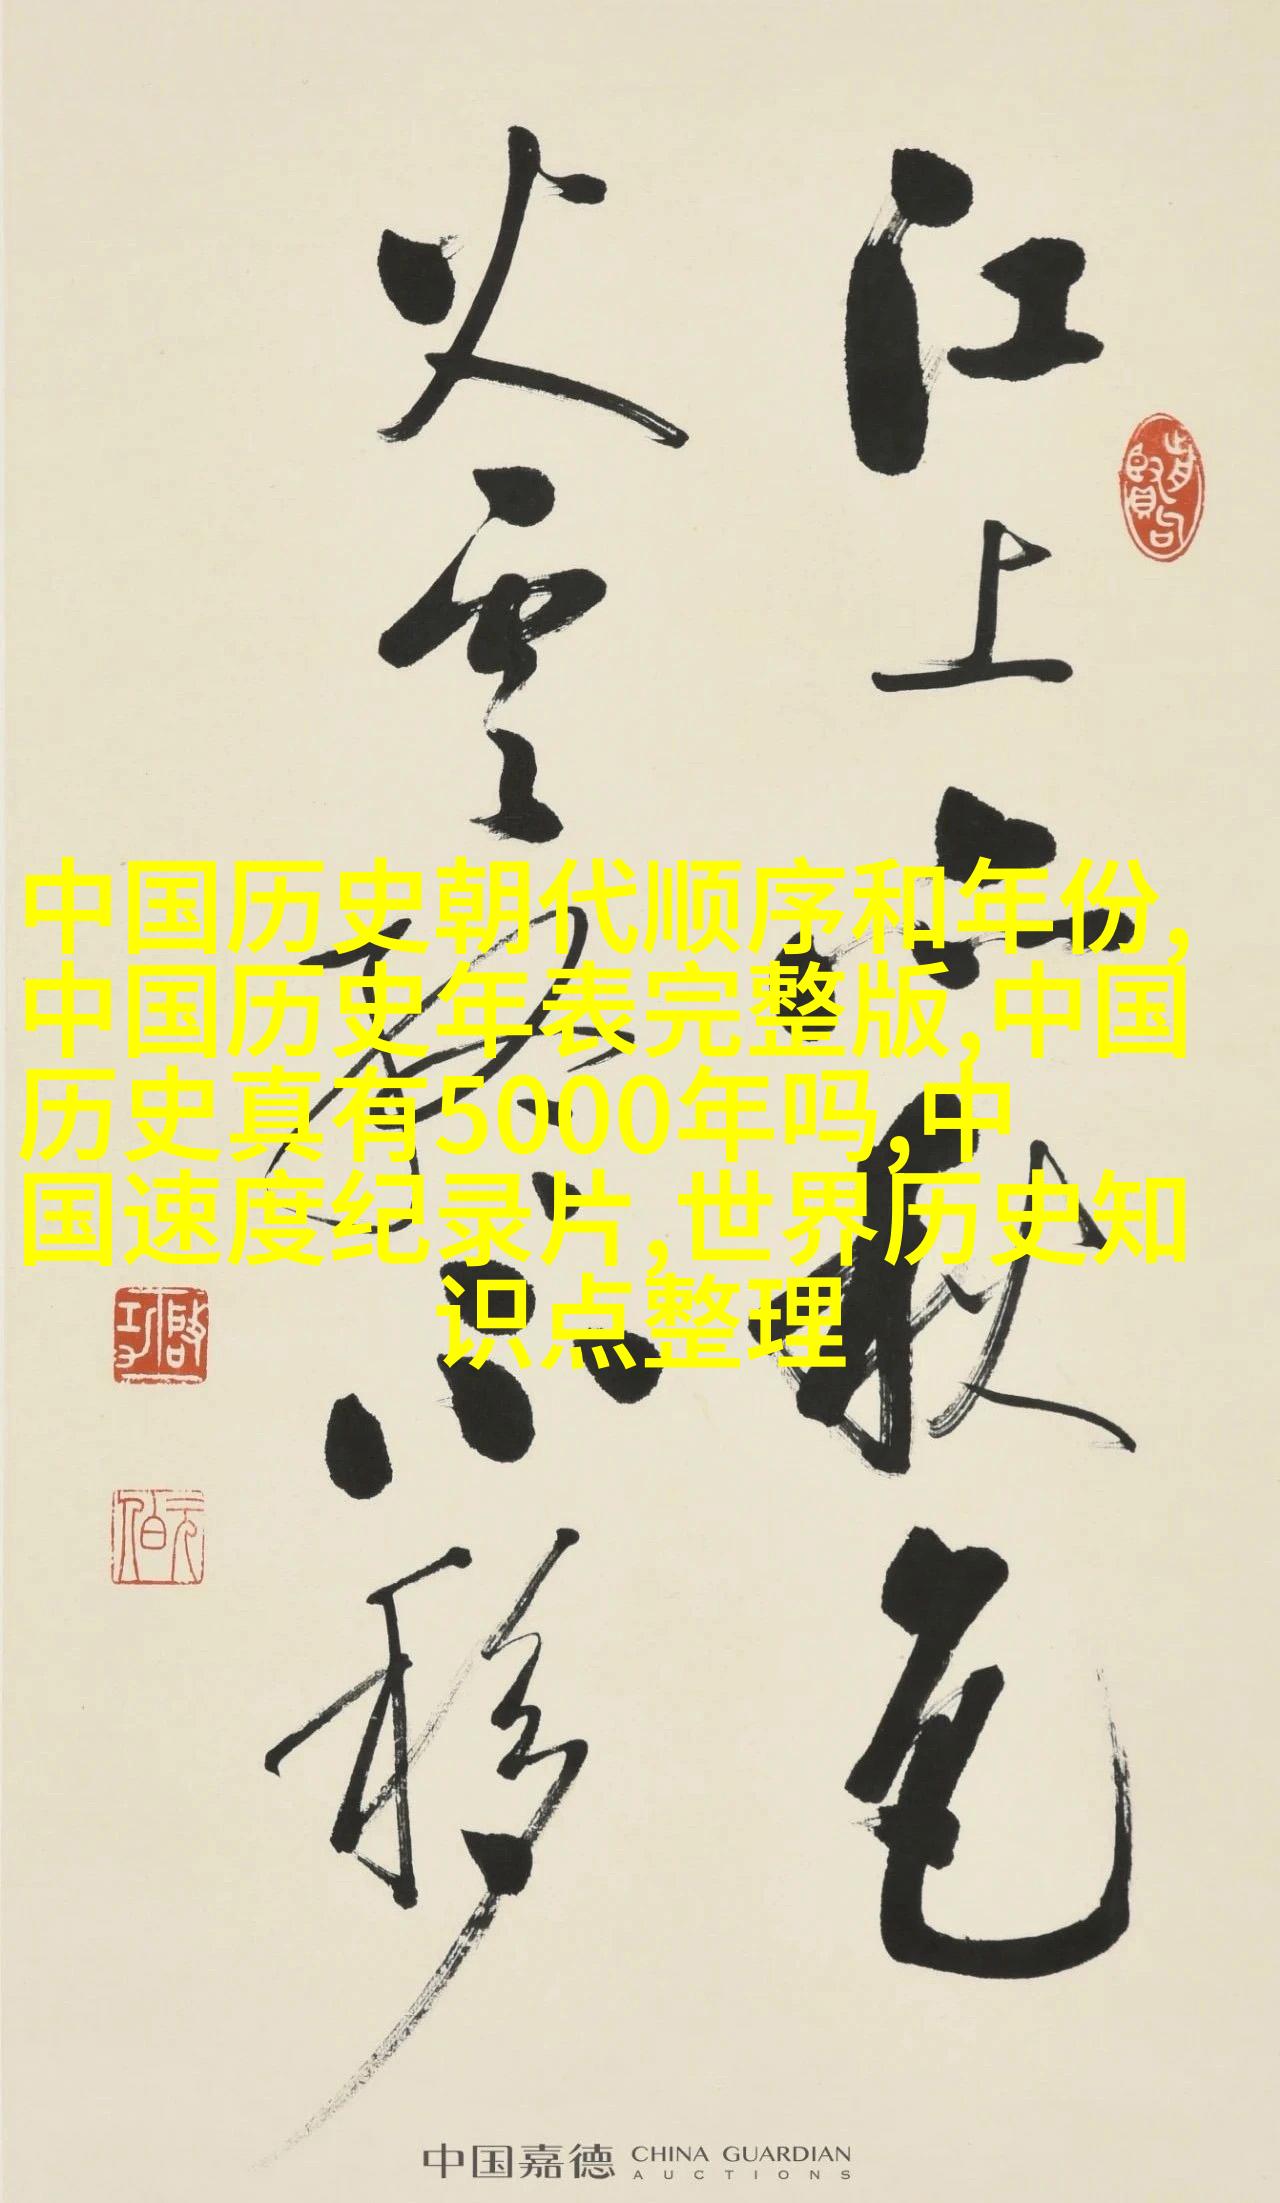 江上亦秋色
火雲終不移
啓功
元伯
中国历史朝代顺序和年份,
中国历史年表完整版,中国
历史真有5000年吗,中
国速度纪录片,世界历史知
识点整理
中国嘉德 CHINA GUARDIAN
AUCTIONS